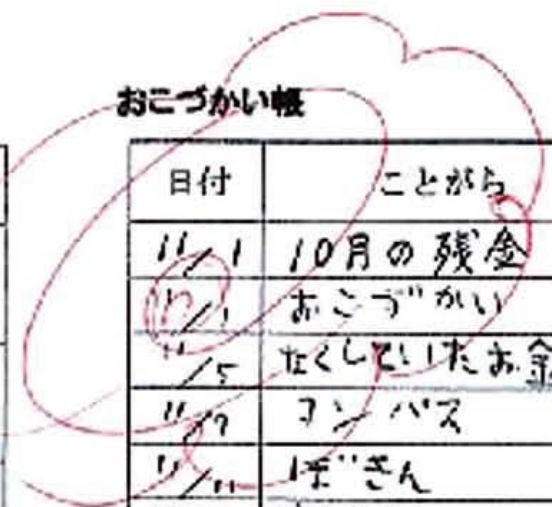 おこづかい帳
日付 ことがら
11/1 10月の残金
11/1 おこづかい
11/5 なくしていたお金
11/7 コンパス
11/11 ぼきん